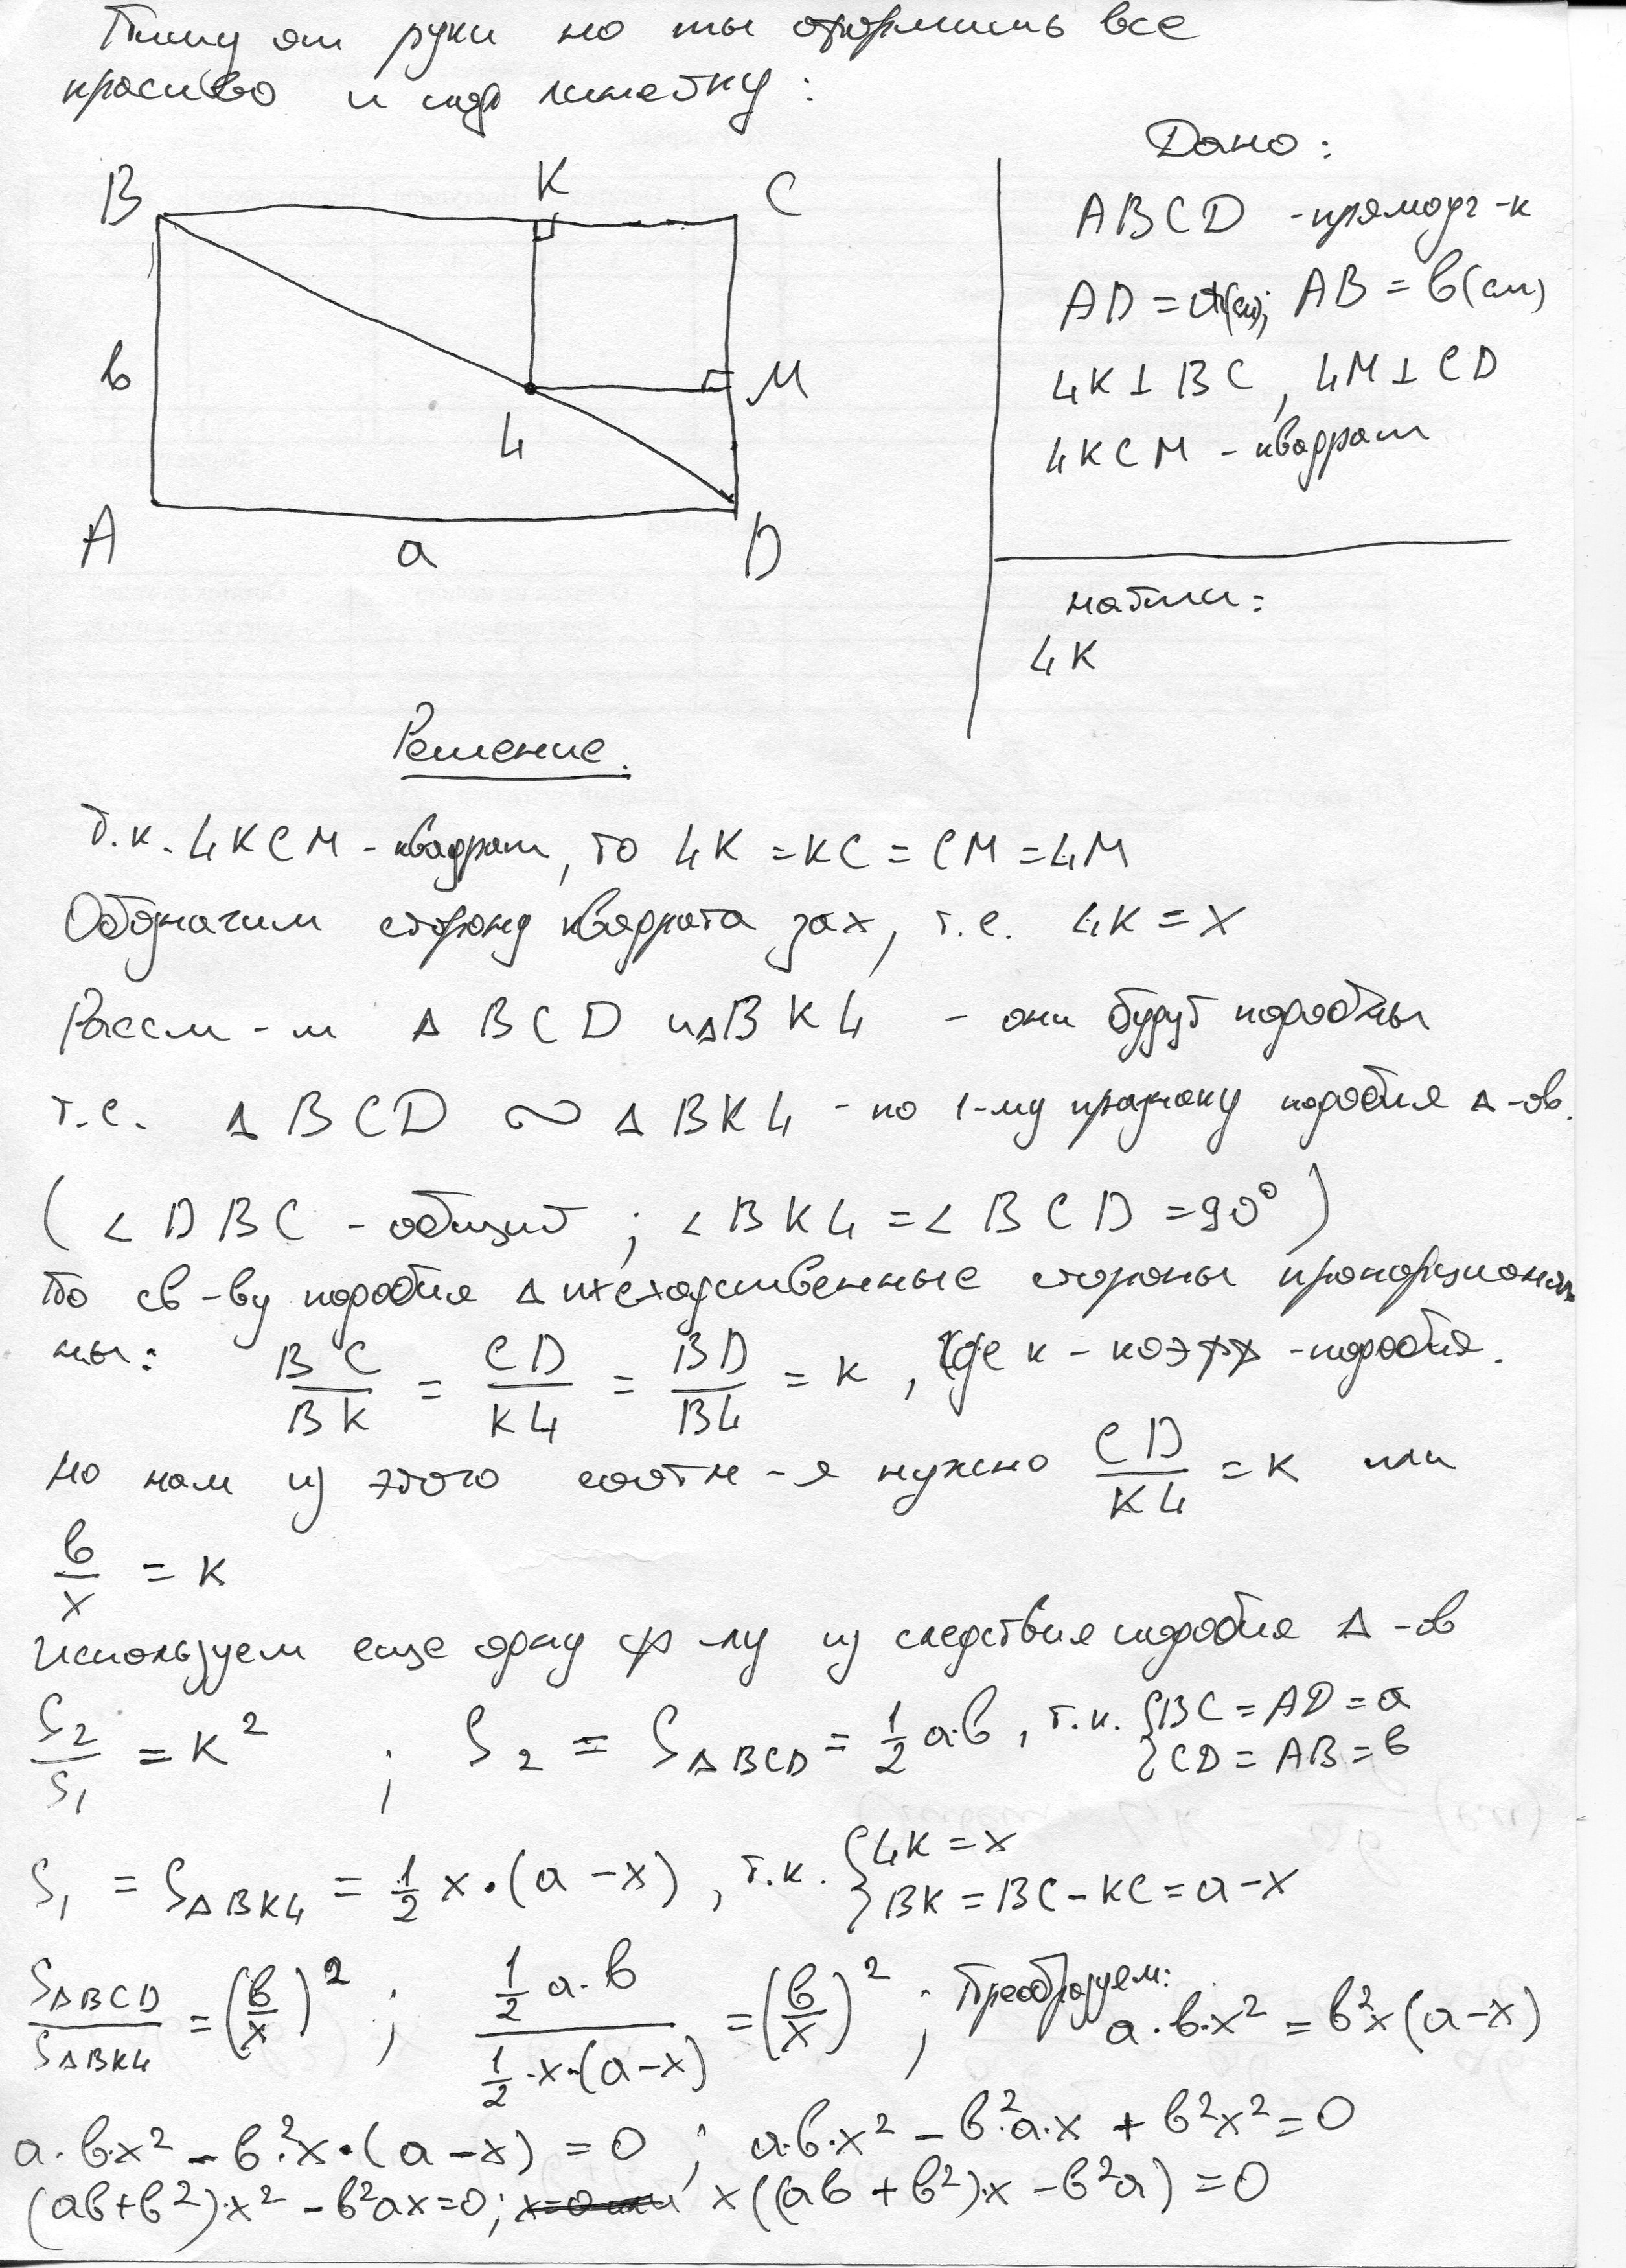 Пишу от руки но ты оформишь все
красиво и под линейку:
B K C
в 4 M
A a D
Дано:
ABCD - прямоуг-к
AD = a(см); AB = в(см)
4K ⊥ BC, 4M ⊥ CD
4KCM - квадрат
найти:
4K
Решение.
т.к. 4KCM - квадрат, то 4K = KC = CM = 4M
Обозначим сторону квадрата за x, т.е. 4K = x
Рассм-м Δ BCD и Δ BK4 - они будут подобны
т.е. Δ BCD ∾ Δ BK4 - по 1-му признаку подобия Δ-ов.
( ∠ DBC - общий ; ∠ BK4 = ∠ BCD = 90° )
По св-ву подобия Δ их сходственные стороны пропорциональ
ны: BC/BK = CD/K4 = BD/B4 = к, где к - коэфф - подобия.
но нам из этого соотн-я нужно CD/K4 = к или
в/x = к
Используем еще одну ф-лу из следствия подобия Δ-ов
S₂/S₁ = к² ; S₂ = S Δ BCD = 1/2 a·в, т.к. { BC = AD = a
{ CD = AB = в
S₁ = S Δ BK4 = 1/2 x·(a-x), т.к. { 4K = x
{ BK = BC - KC = a-x
SΔBCD/SΔBK4 = (в/x)² ; (1/2 a·в)/(1/2·x·(a-x)) = (в/x)² ; Преобразуем: a·в·x² = в²x(a-x)
a·в·x² - в²·x·(a-x) = 0 ; a·в·x² - в²·a·x + в²x² = 0
(aв+в²)·x² - в²ax=0; x((aв+в²)·x - в²a) = 0